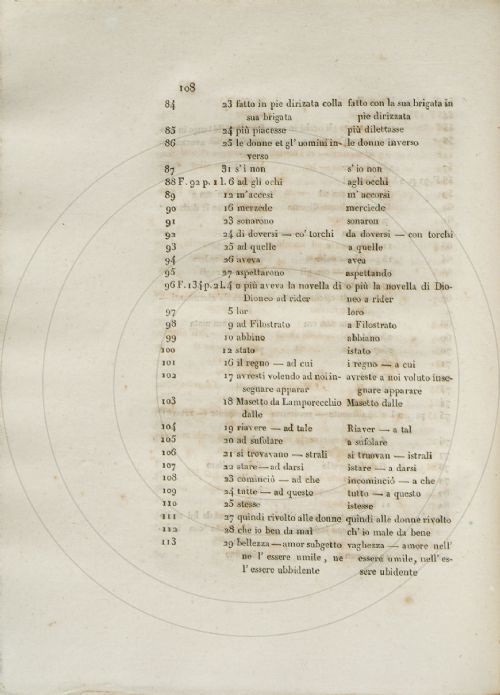 108
84 23 fatto in pie dirizata colla fatto con la sua brigata in
sua brigata pie dirizzata
85 24 più piacesse più dilettasse
86 25 le donne et gl' uomini in- le donne inverso
verso
87 31 s' i non s' io non
88 F. 92 p. 1 l. 6 ad gli ochi agli occhi
89 12 m' accesi m' accorsi
90 16 merzede merciede
91 23 sonarono sonaron
92 24 di doversi — co' torchi da doversi — con torchi
93 25 ad quelle a quelle
94 26 aveva avea
95 27 aspettarono aspettando
96 F. 134 p. 2 l. 4 o più aveva la novella di o più la novella di Dio-
Dioneo ad rider neo a rider
97 5 lor loro
98 9 ad Filostrato a Filostrato
99 10 abbino abbiano
100 12 stato istato
101 16 il regno — ad cui i regno — a cui
102 17 avresti volendo ad noi in- avreste a noi voluto inse-
segnare apparar gnare apparare
103 18 Masetto da Lamporecchio Masetto dalle
dalle
104 19 riavere — ad tale Riaver — a tal
105 20 ad sufolare a sufolare
106 21 si trovavano — strali si truovan — istrali
107 22 stare — ad darsi istare — a darsi
108 23 cominciò — ad che incominciò — a che
109 24 tutte — ad questo tutto — a questo
110 25 stesse istesse
111 27 quindi rivolto alle donne quindi alle donne rivolto
112 28 che io ben da mal ch' io male da bene
113 29 bellezza — amor subgetto vaghezza — amore nell'
ne l' essere umile, ne essere umile, nell' es-
l' essere ubbidente sere ubidente